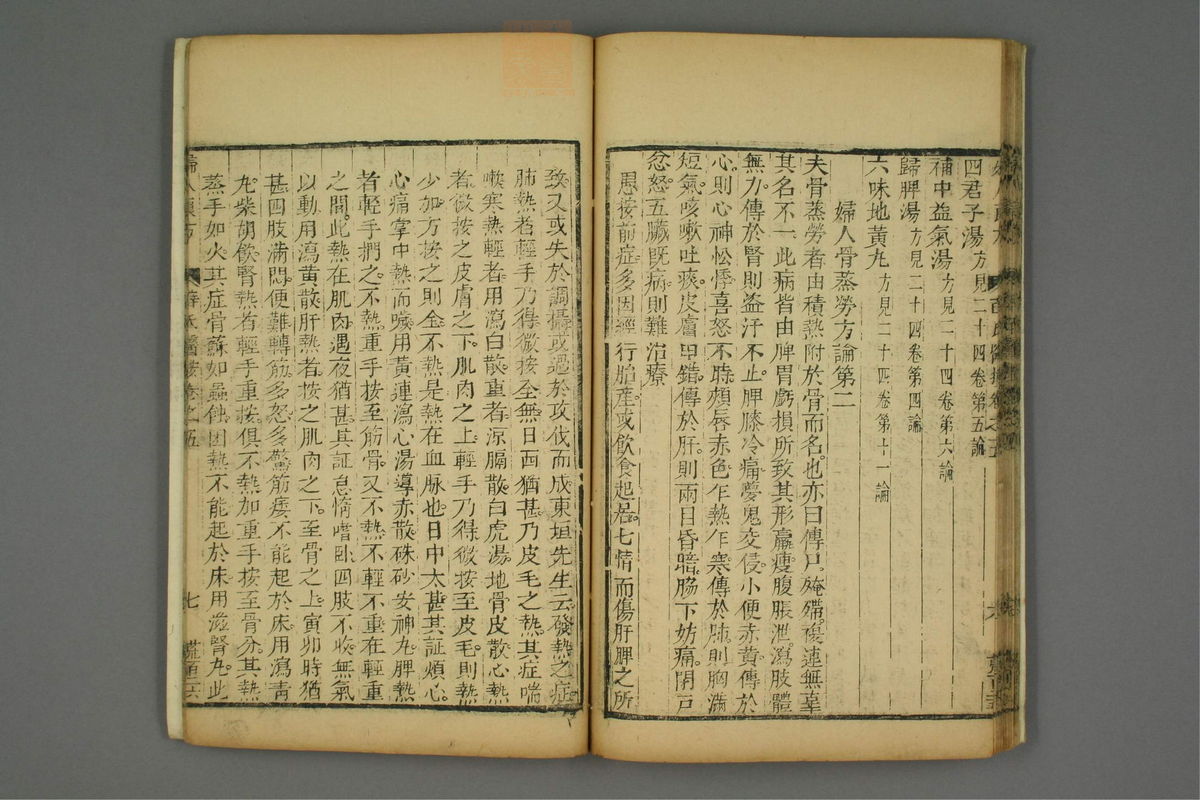 四君子湯方見二十四卷第五論
補中益氣湯方見二十四卷第六論
歸脾湯方見二十四卷第四論
六味地黃丸方見二十四卷第十一論
婦人骨蒸勞方論第二
夫骨蒸勞者由積熱附於骨而名也亦曰傳尸殗殜復連無辜
其名不一此病皆由脾胃虧損所致其形羸瘦腹脹泄瀉肢體
無力傳於腎則盜汗不止腰膝冷痛夢鬼交侵小便赤黃傳於
心則心神忪悸喜怒不時頰唇赤色乍熱乍寒傳於肺則胸滿
短氣咳嗽吐痰皮膚甲錯傳於肝則兩目昏暗脇下妨痛閉戶
忿怒五臟既病則難治療
愚按前症多因經行胎產或飲食起居七情而傷肝脾之所
致又或失於調攝或過於攻伐而成東垣先生云發熱之症
肺熱者輕手乃得微按全無日西猶甚乃皮毛之熱其症喘
嗽寒熱輕者用瀉白散重者涼膈散白虎湯地骨皮散心熱
者微按之皮膚之下肌肉之上輕手乃得微按至皮毛則熱
少加力按之則全不熱是熱在血脉也日中太甚其証煩心
心痛掌中熱而噦用黃連瀉心湯導赤散硃砂安神丸脾熱
者輕手捫之不熱重手按至筋骨又不熱不輕不重在輕重
之間此熱在肌肉遇夜猶甚其証怠惰嗜臥四肢不收無氣
以動用瀉黃散肝熱者按之肌肉之下至骨之上寅卯時猶
甚四肢滿悶便難轉筋多怒多驚筋痿不能起於床用瀉青
丸柴胡飲腎熱者輕手重按俱不熱加重手按至骨分其熱
蒸手如火其症骨蘇如蟲蝕困熱不能起於床用滋腎丸此
婦人良方
薛氏醫按卷之五
七